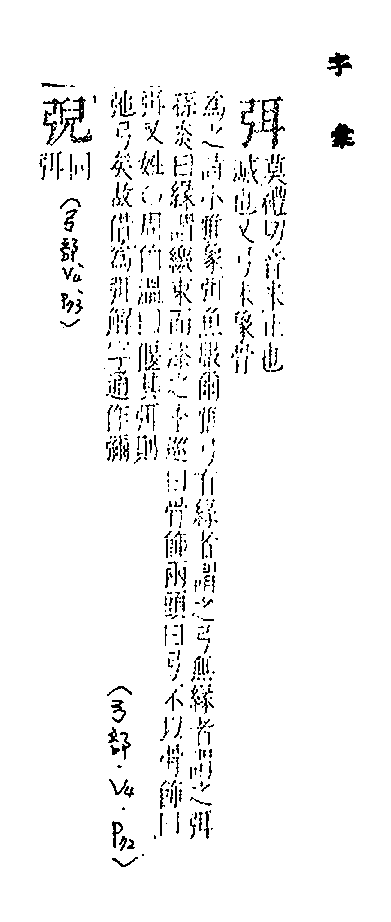 字彙
弭
莫禮切音米止也
滅也又弓末象骨
為之詩小雅象弭魚服爾雅弓有緣者謂之弓無緣者謂之弭
孫炎曰緣謂繳束而漆之李巡曰骨飾兩頭曰弓不以骨飾曰
弭又姓
弛弓矣故借為弭解字通作彌
(弓部.V4.P72)
䋚同
弭
(弓部.V4.P73)